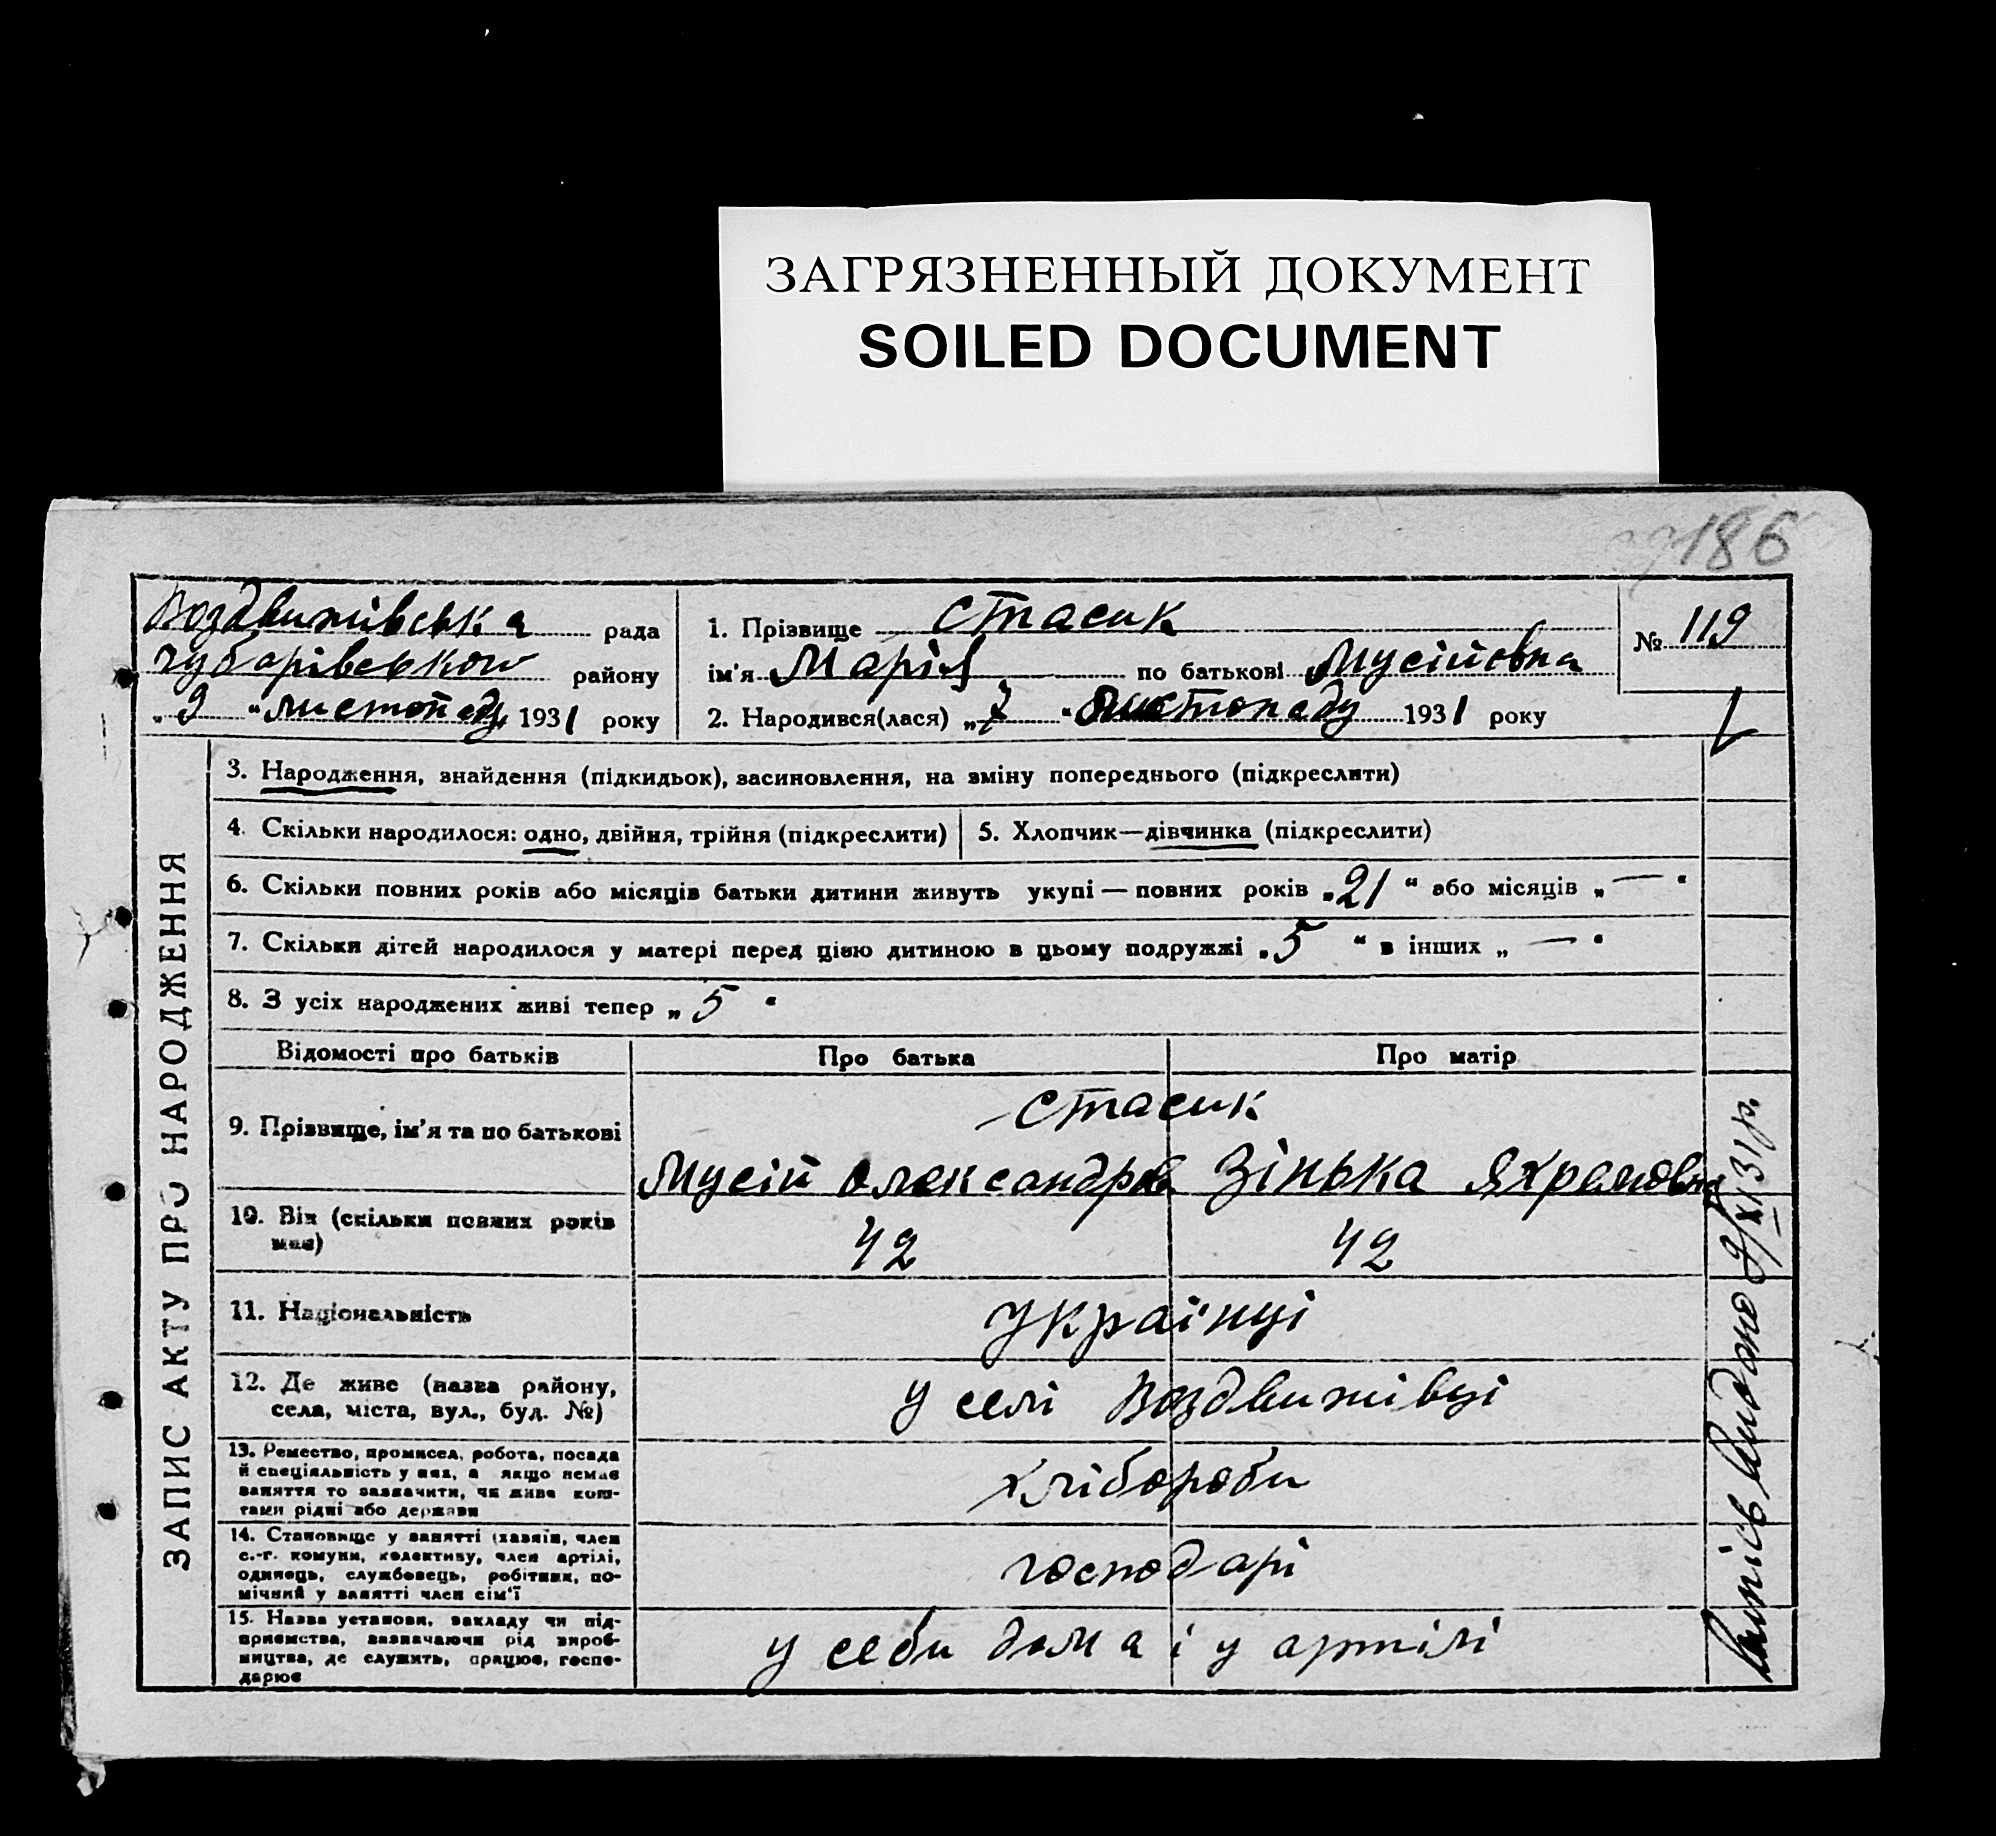 ЗАГРЯЗНЕННЫЙ ДОКУМЕНТ
SOILED DOCUMENT
186
Воздвижівська рада
Чубарівського району
„9“ листопаду 1931 року
1. Прізвище Стасик
ім'я Марія по батькові Мусійовна
2. Народився(лася) „7“ листопаду 1931 року
№ 119
ЗАПИС АКТУ ПРО НАРОДЖЕННЯ
3. Народження, знайдення (підкидьок), засиновлення, на зміну попереднього (підкреслити)
4. Скільки народилося: одно, двійня, трійня (підкреслити)
5. Хлопчик—дівчинка (підкреслити)
6. Скільки повних років або місяців батьки дитини живуть укупі — повних років „21“ або місяців „—“
7. Скільки дітей народилося у матері перед цією дитиною в цьому подружжі „5“ в інших „—“
8. З усіх народжених живі тепер „5“
Відомості про батьків
Про батька
Про матір
9. Прізвище, ім'я та по батькові
Стасик
Мусій Олександров
Зінька Яхремовна
10. Вік (скільки повних років
має)
42
42
11. Національність
Українці
12. Де живе (назва району,
села, міста, вул., буд. №)
у селі Воздвижівці
13. Ремество, промисел, робота, посада
й спеціяльність у них, а якщо немає
заняття то зазначити, чи живе кош-
тами рідні або держави
хлібороби
14. Становище у занятті (хазяїн, член
с.-г. комуни, колективу, член артілі,
одинець, службовець, робітник, по-
мічний у занятті член сім'ї
господарі
15. Назва установи, закладу чи під-
приємства, зазначаючи рід вироб-
ництва, де служить, працює, госпо-
дарює
у себи дома і у артілі
Випись видано 9/XI 31 р.